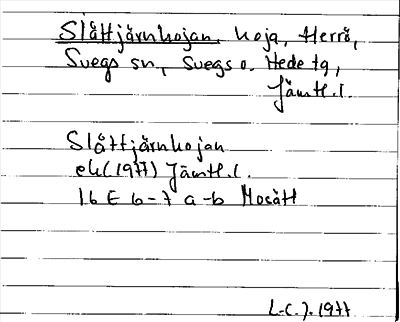 Slåttjärnkojan, koja, Herrö,
Svegs sn, Svegs o. Hede tg,
Jämtl. l.
Slåttjärnkojan
ek (1977) Jämtl. l.
16 E 6-7 a-b Mosätt
L-C. J. 1977